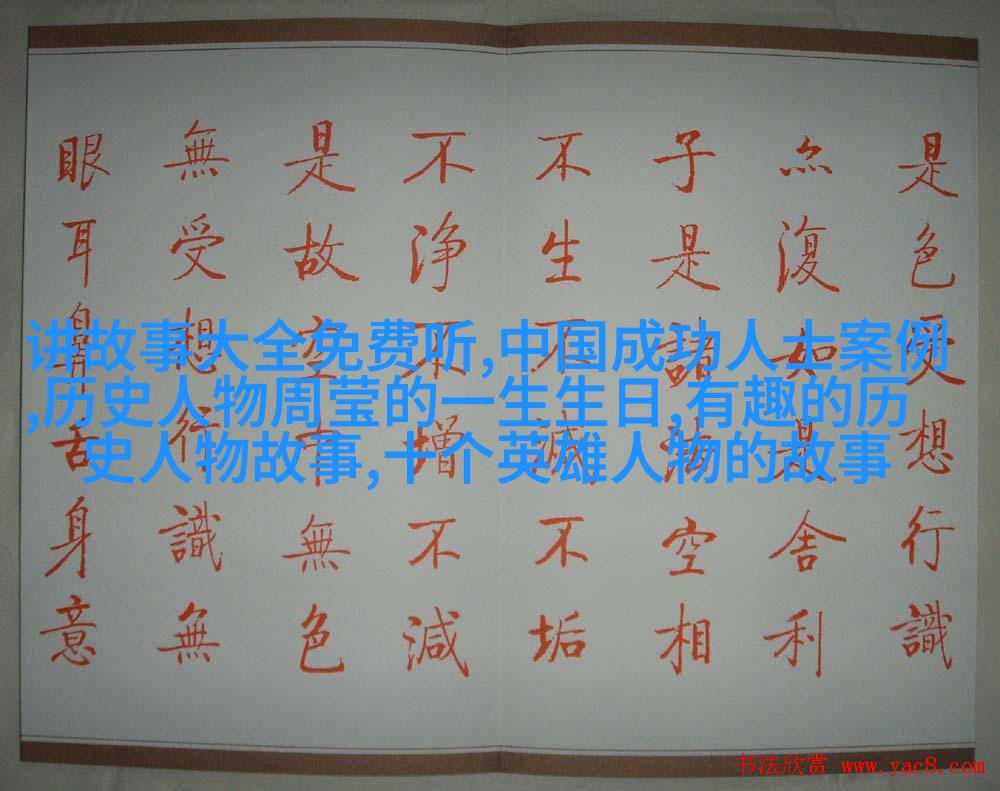 是色受想行識
亦復如是舍利
子是諸法空相
不生不滅不垢
不净不增不減
是故空中無色
無受想行識無
眼耳鼻舌身意
讲故事大全免费听,中国成功人士案例
,历史人物周莹的一生生日,有趣的历
史人物故事,十个英雄人物的故事
书法欣赏 www.yac8.com